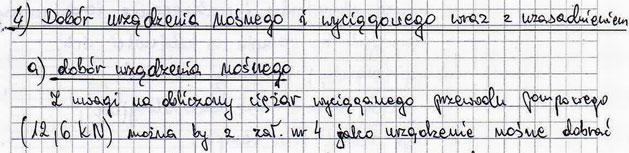 4) Dobór urządzenia nośnego i wyciągowego wraz z uzasadnieniem
a) dobór urządzenia nośnego
Z uwagi na obliczony ciężar wyciąganego przewodu pompowego
(12,6 kN) można by z zał. nr 4 jako urządzenie nośne dobrać